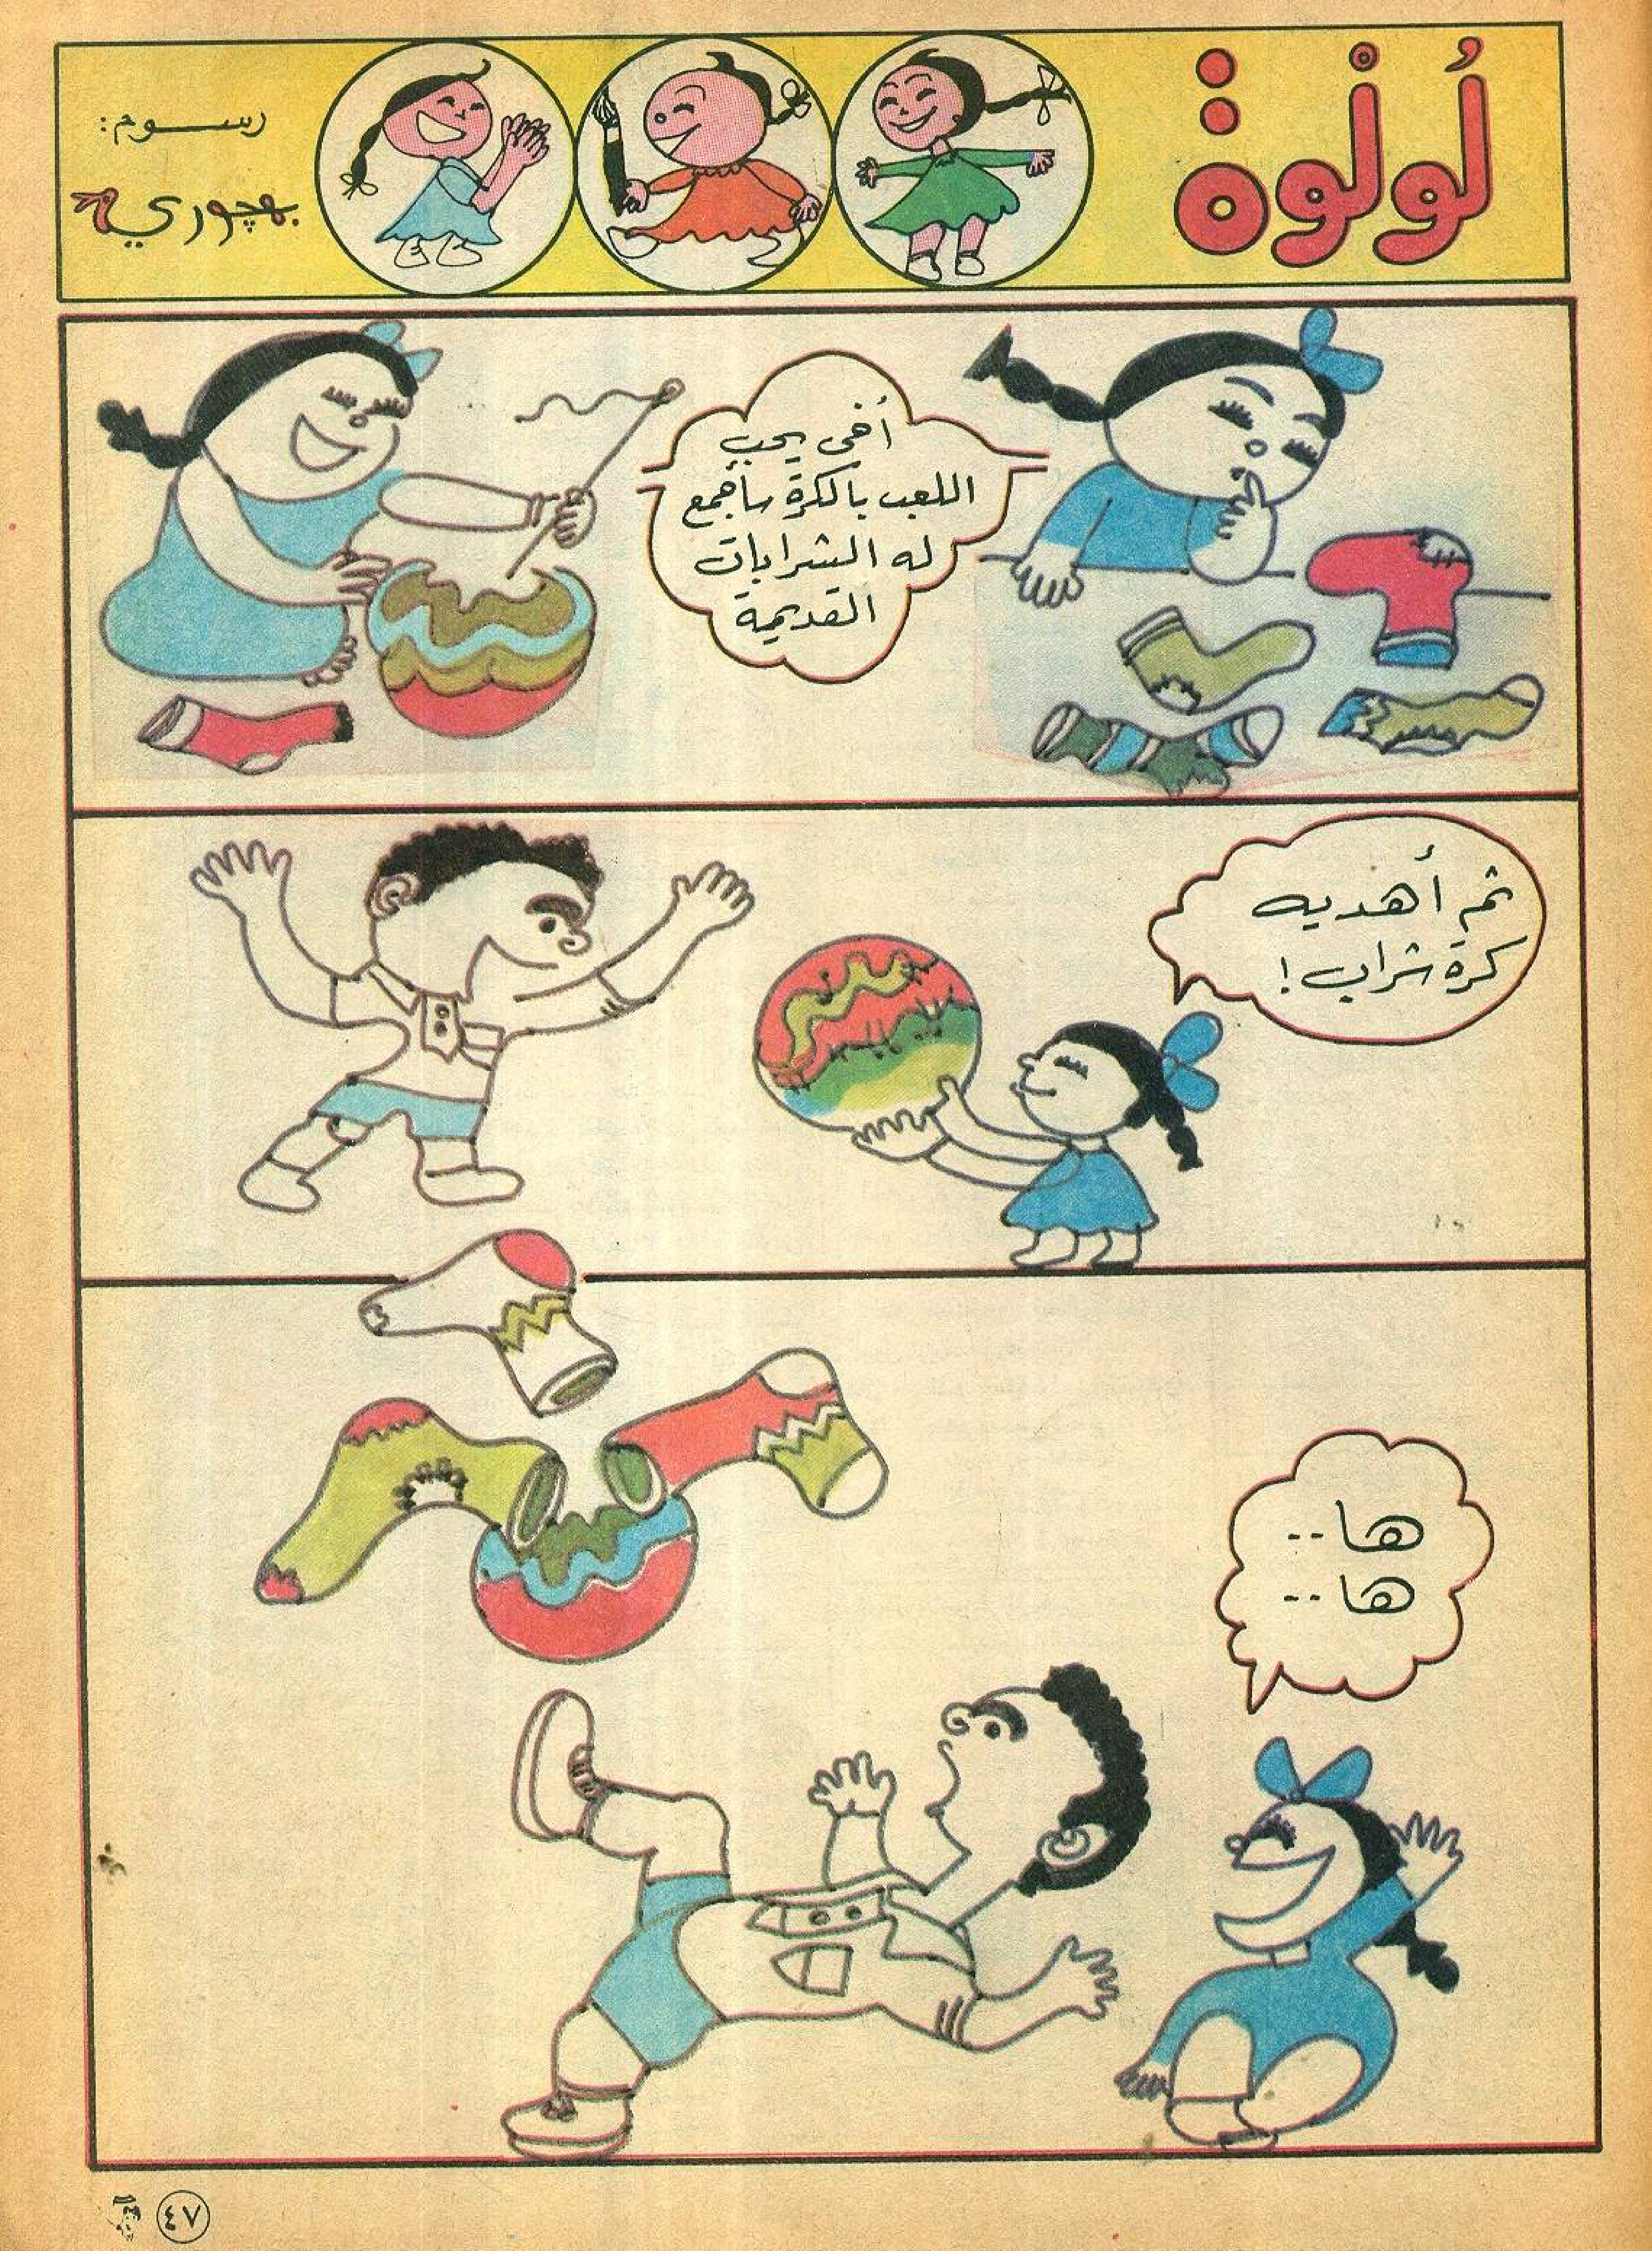 لُولْوة
رسوم:
بهجوري
أخى يحب
اللعب بالكرة سأجمع
له الشرابات
القديمة
ثم أهديه
كرة شراب!
ها..
ها..
٤٧